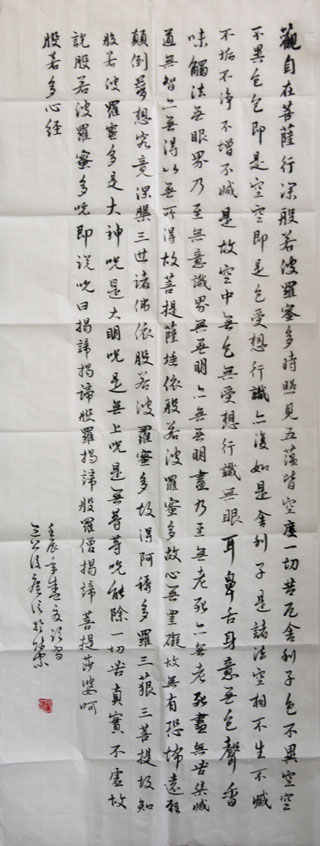 觀自在菩薩行深般若波羅蜜多時照見五蘊皆空度一切苦厄舍利子色不異空空
不異色色即是空空即是色受想行識亦復如是舍利子是諸法空相不生不滅
不垢不淨不增不減是故空中無色無受想行識無眼耳鼻舌身意無色聲香
味觸法無眼界乃至無意識界無無明亦無無明盡乃至無老死亦無老死盡無苦集滅
道無智亦無得以無所得故菩提薩埵依般若波羅蜜多故心無罣礙故無有恐怖遠離
顛倒夢想究竟涅槃三世諸佛依般若波羅蜜多故得阿耨多羅三藐三菩提故知
般若波羅蜜多是大神咒是大明咒是無上咒是無等等咒能除一切苦真實不虛故
說般若波羅蜜多咒即說咒曰揭諦揭諦般羅揭諦般羅僧揭諦菩提莎婆呵
般若多心經
壬辰年